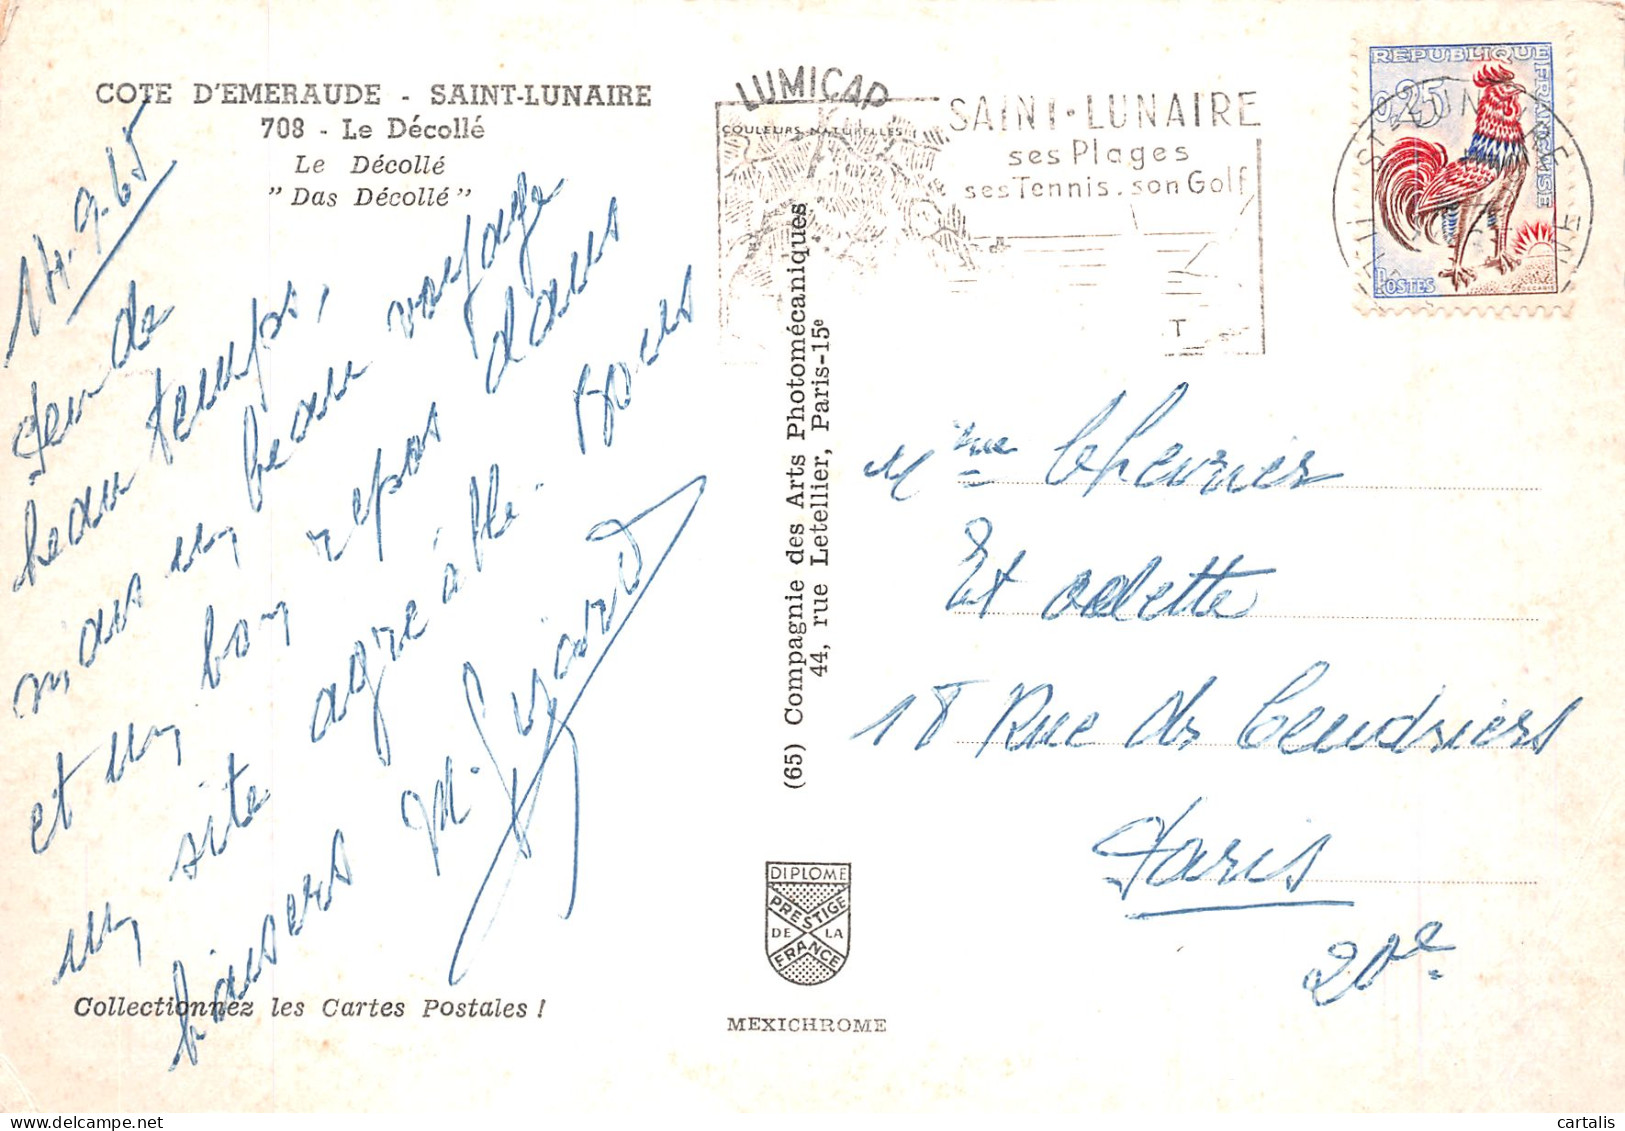 COTE D'EMERAUDE - SAINT-LUNAIRE
708 - Le Décollé
Le Décollé
"Das Décollé"
14.9.65
Peu de
beau temps,
mais un beau voyage
et un bon repos dans
un site agréable. Bons
baisers M.
Collectionnez les Cartes Postales !
LUMICAP
COULEURS NATURELLES
(65) Compagnie des Arts Photomécaniques
44, rue Letellier, Paris-15e
DIPLOME
PRESTIGE
DE LA
FRANCE
MEXICHROME
SAINT-LUNAIRE
ses Plages
ses Tennis. son Golf
REPUBLIQUE FRANÇAISE
0,25
POSTES
Mme Chevrier
Et Odette
18 Rue des Cendriers
Paris
20e
cartalis
delcampe.net